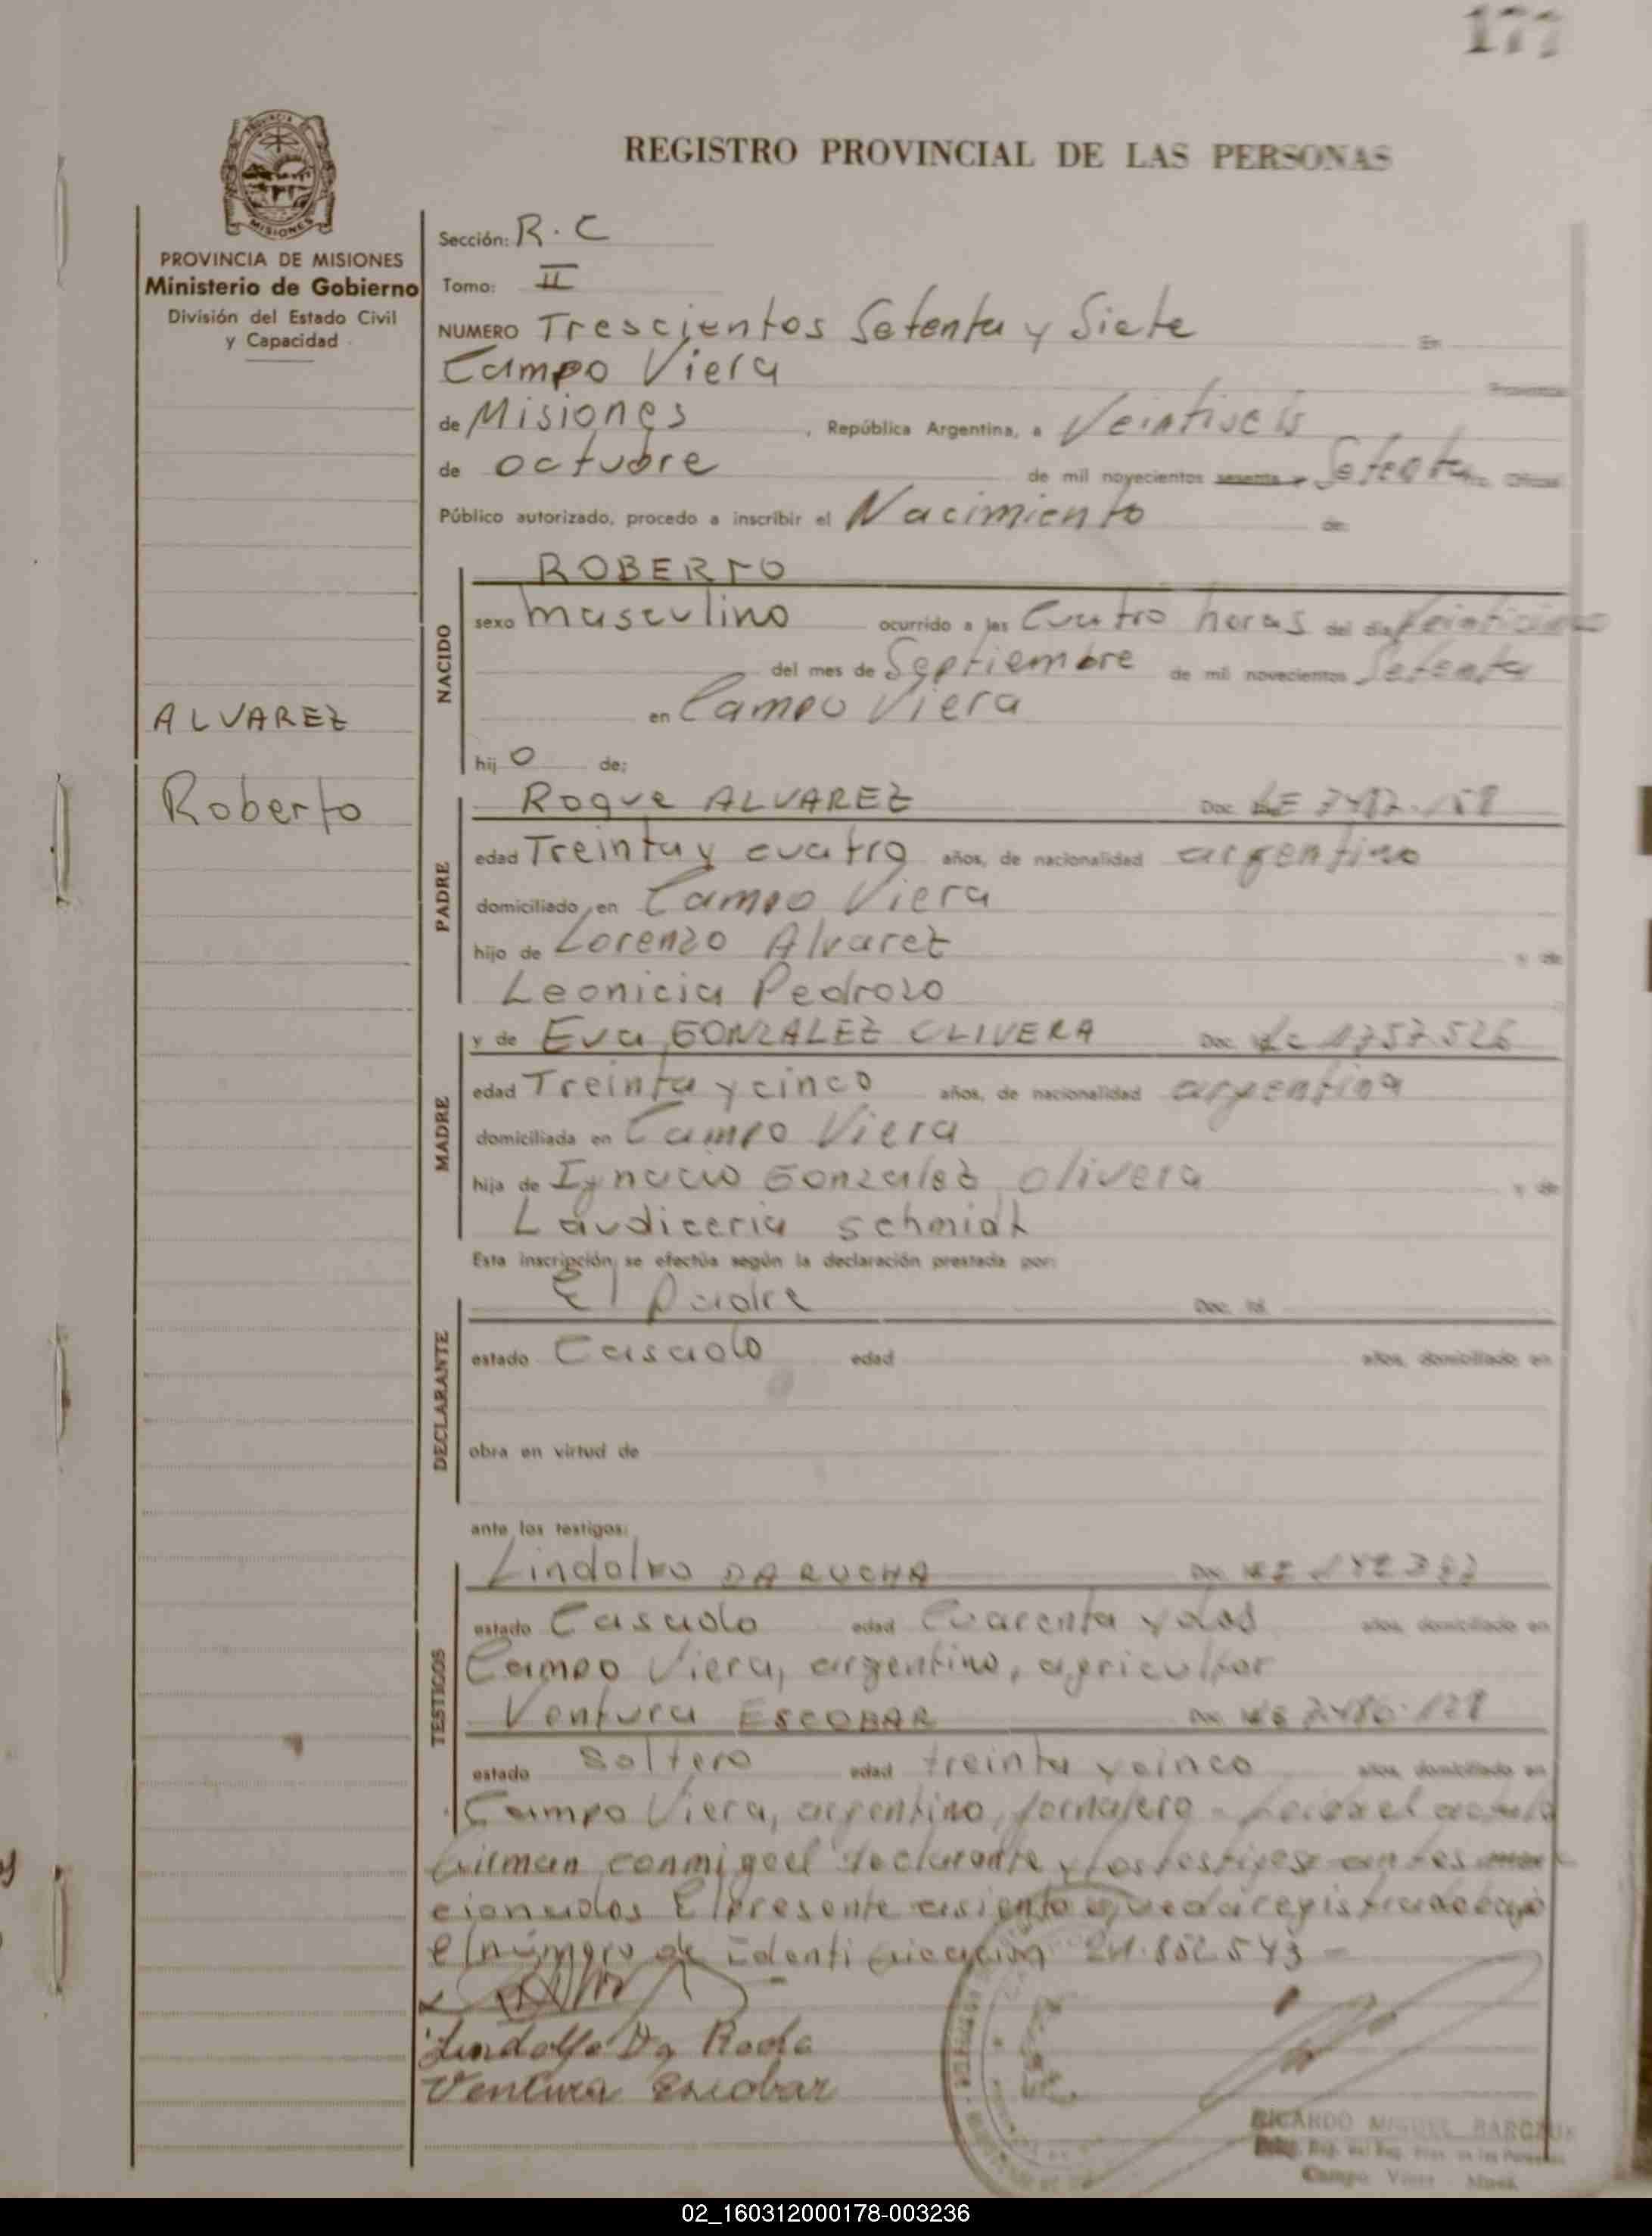 177
REGISTRO PROVINCIAL DE LAS PERSONAS
MISIONES
PROVINCIA DE MISIONES
Ministerio de Gobierno
División del Estado Civil
y Capacidad
ALVAREZ
Roberto
Sección: R.C
Tomo: II
NUMERO Trescientos Setenta y Siete En
Campo Viera
de Misiones, República Argentina, a Veintiseis
de octubre de mil novecientos sesenta y Setenta
Público autorizado, procedo a inscribir el Nacimiento de:
NACIDO
ROBERTO
sexo masculino ocurrido a las Cuatro horas del día
del mes de Septiembre de mil novecientos Setenta
en Campo Viera
hij o de:
PADRE
Roque ALVAREZ Doc. LE
edad Treinta y cuatro años, de nacionalidad argentino
domiciliado en Campo Viera
hijo de Lorenzo Alvarez y de
Leonicia Pedrozo
MADRE
y de Eva GONZALEZ OLIVERA Doc. Lc 1757526
edad Treinta y cinco años, de nacionalidad argentina
domiciliada en Campo Viera
hija de Ignacio Gonzalez Olivera y de
Laudiceria Schmidt
Esta inscripción se efectúa según la declaración prestada por:
DECLARANTE
El padre Doc. Id.
estado Casado edad años, domiciliado en
obra en virtud de
ante los testigos:
TESTIGOS
Lindolfo DA ROCHA Doc.
estado Casado edad Cuarenta y dos años, domiciliado en
Campo Viera, argentino, agricultor
Ventura ESCOBAR Doc.
estado Soltero edad treinta y cinco años, domiciliado en
Campo Viera, argentino, jornalero - Leida el acta la
firman conmigo el declarante y los testigos antes men
cionados El presente asiento queda registrado bajo
el número de identificación 21.852.543 -
Lindolfo Da Rocha
Ventura Escobar
RICARDO MIGUEL
Campo Viera - Mnes.
02_160312000178-003236